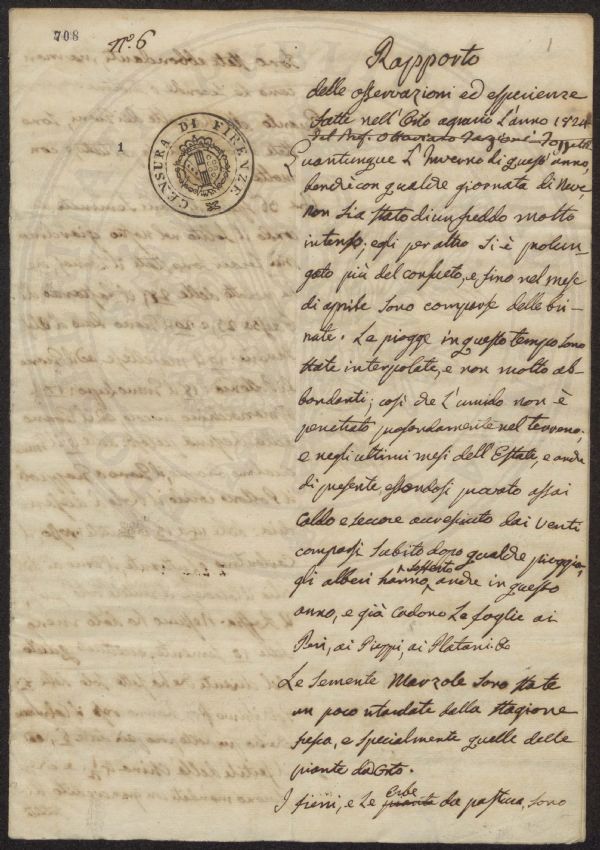 708
n.° 6
1
CENSURA DI FIRENZE
1
Rapporto
delle osservazioni ed esperienze
fatte nell'Orto agrario L'anno 1824
Del Prof. Ottaviano Targioni Tozzetti
Quantunque L'Inverno di quest'anno,
benchè con qualche giornata di Neve,
non sia stato di un freddo molto
intenso; egli per altro si è prolun-
gato più del consueto, e fino nel mese
di aprile sono comparse delle bri-
nate. Le piogge in questo tempo sono
state interpolate, e non molto ab-
bondanti; così che L'umido non è
penetrato profondamente nel terreno;
e negli ultimi mesi dell'Estate, e anche
di presente, essendosi provato assai
Caldo e seccore accresciuto dai Venti
comparsi subito dopo qualche pioggia,
sofferto
gli alberi hanno, anche in questo
anno, e già cadono Le foglie ai
Peri, ai Pioppi, ai Platani &c
Le semente Marzole sono state
un poco ritardate dalla stagione
fresca, e specialmente quelle delle
piante da Orto.
Erbe
I fieni, e Le piante da pastura, sono